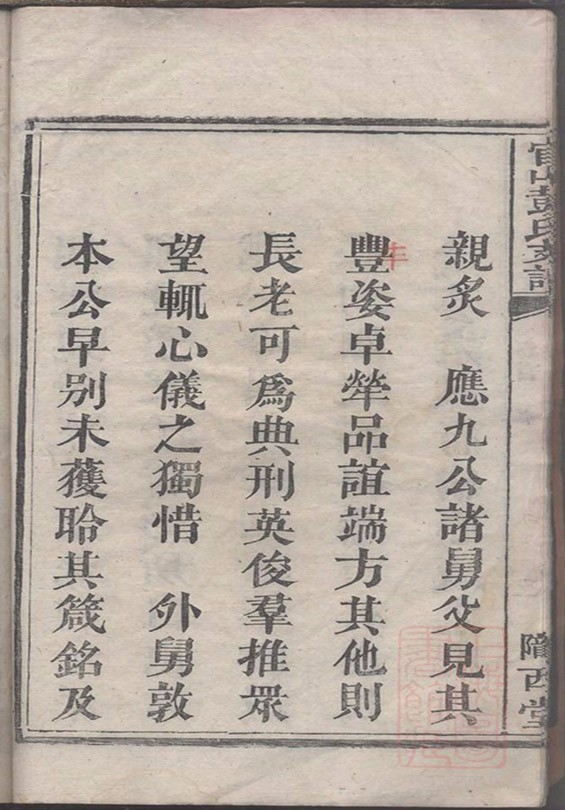 官山彭氏支譜
隴西堂
親炙　應九公諸舅父見其
豐姿卓犖品誼端方其他則
年
長老可爲典刑英俊羣推眾
望輒心儀之獨惜　外舅敦
本公早別未獲聆其箴銘及